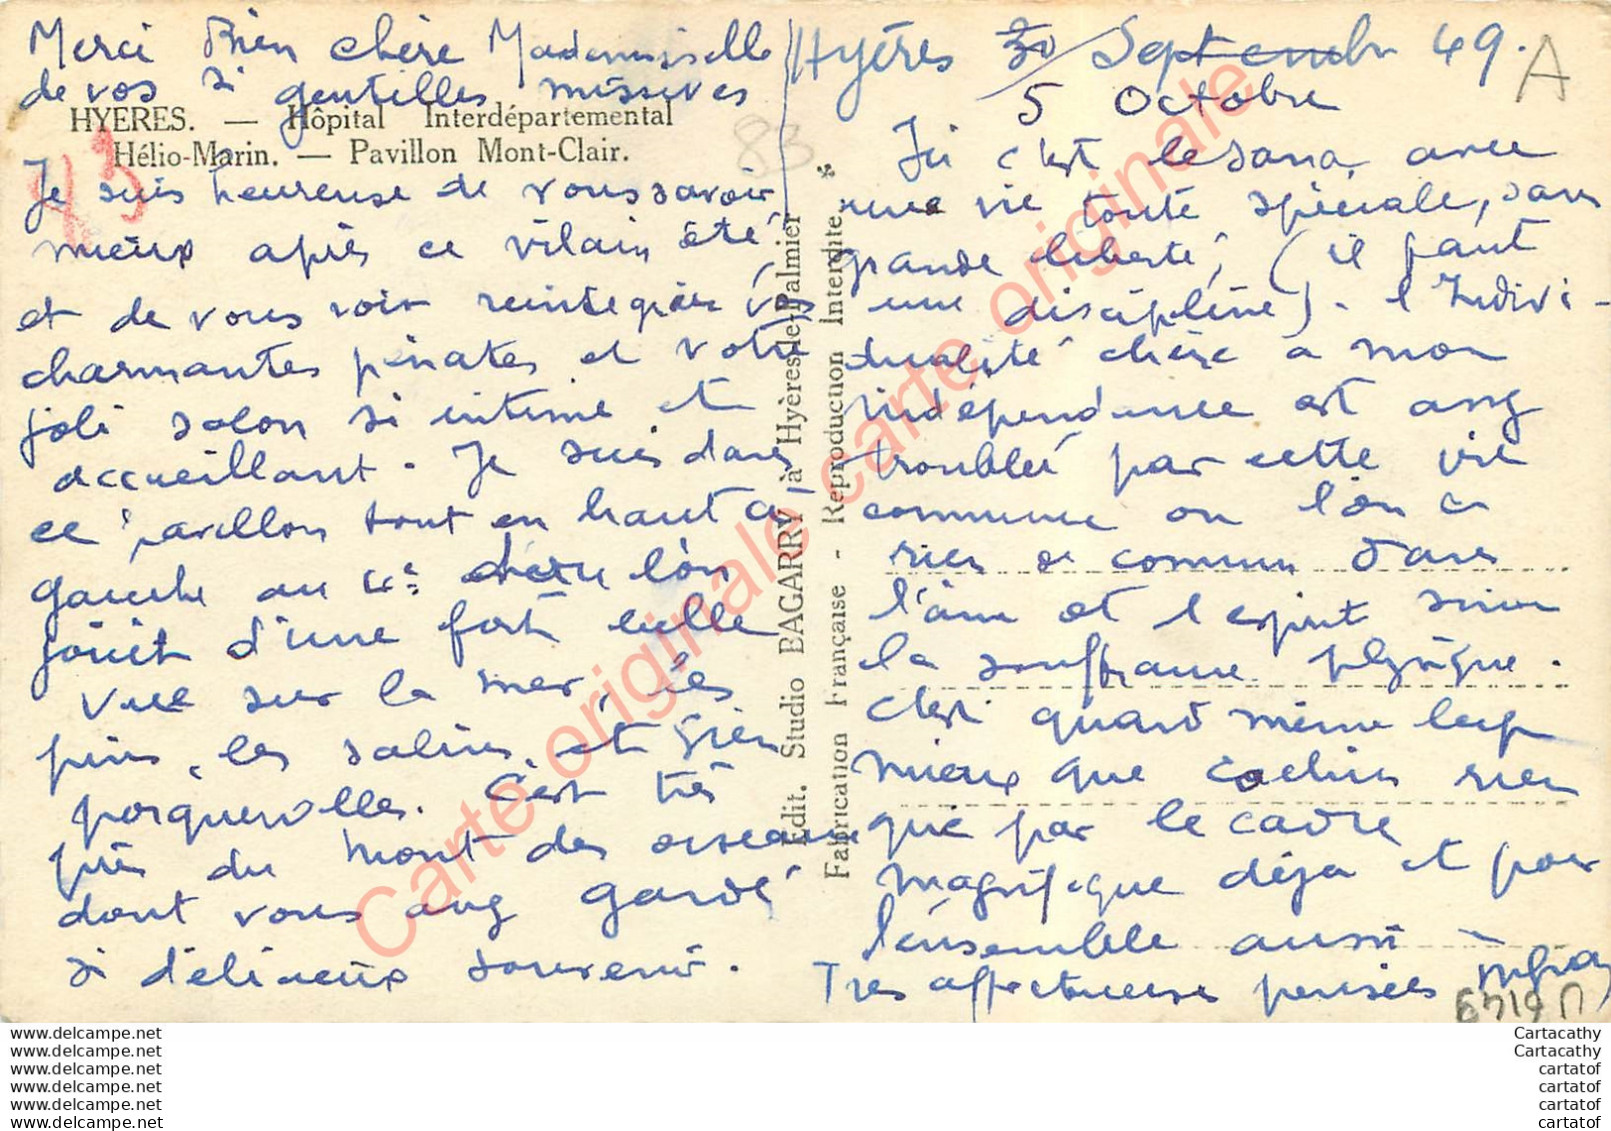 Merci Bien chère Mademoiselle
de vos si gentilles missives
HYERES. — Hôpital Interdépartemental
Hélio-Marin. — Pavillon Mont-Clair.
83
Je suis heureuse de vous savoir
mieux après ce vilain été
et de vous voir reintegrée vos
charmantes pénates et votre
joli salon si intime et
accueillant. Je suis dans
ce pavillon tout en haut à
gauche au 4e d'où l'on
jouit d'une fort belle
vue sur la mer, les
pins, les salins, et Gien
porquerolles. C'est très
près du Mont des oiseaux
dont vous avez gardé
si délicieux souvenir.
Edit. Studio BAGARRY, à Hyères-le-Palmier
Fabrication Française - Reproduction Interdite
*
Hyères 30 Septembre 49.
5 Octobre
A
83
Ici c'est le sana, avec
une vie toute spéciale, sans
grande liberté, (il faut
une discipline). l'Indivi-
dualité chère à mon
indépendance est assez
troublée par cette vie
commune ou l'on a
rien de commun dans
l'âme et l'esprit sinon
la souffrance physique.
C'est quand même bcp
mieux que Cochin rien
que par le cadre
magnifique déjà et pour
l'ensemble aussi
Très affectueuses pensées
Carte originale carte originale
www.delcampe.net
www.delcampe.net
www.delcampe.net
www.delcampe.net
www.delcampe.net
www.delcampe.net
Cartacathy
Cartacathy
cartatof
cartatof
cartatof
cartatof